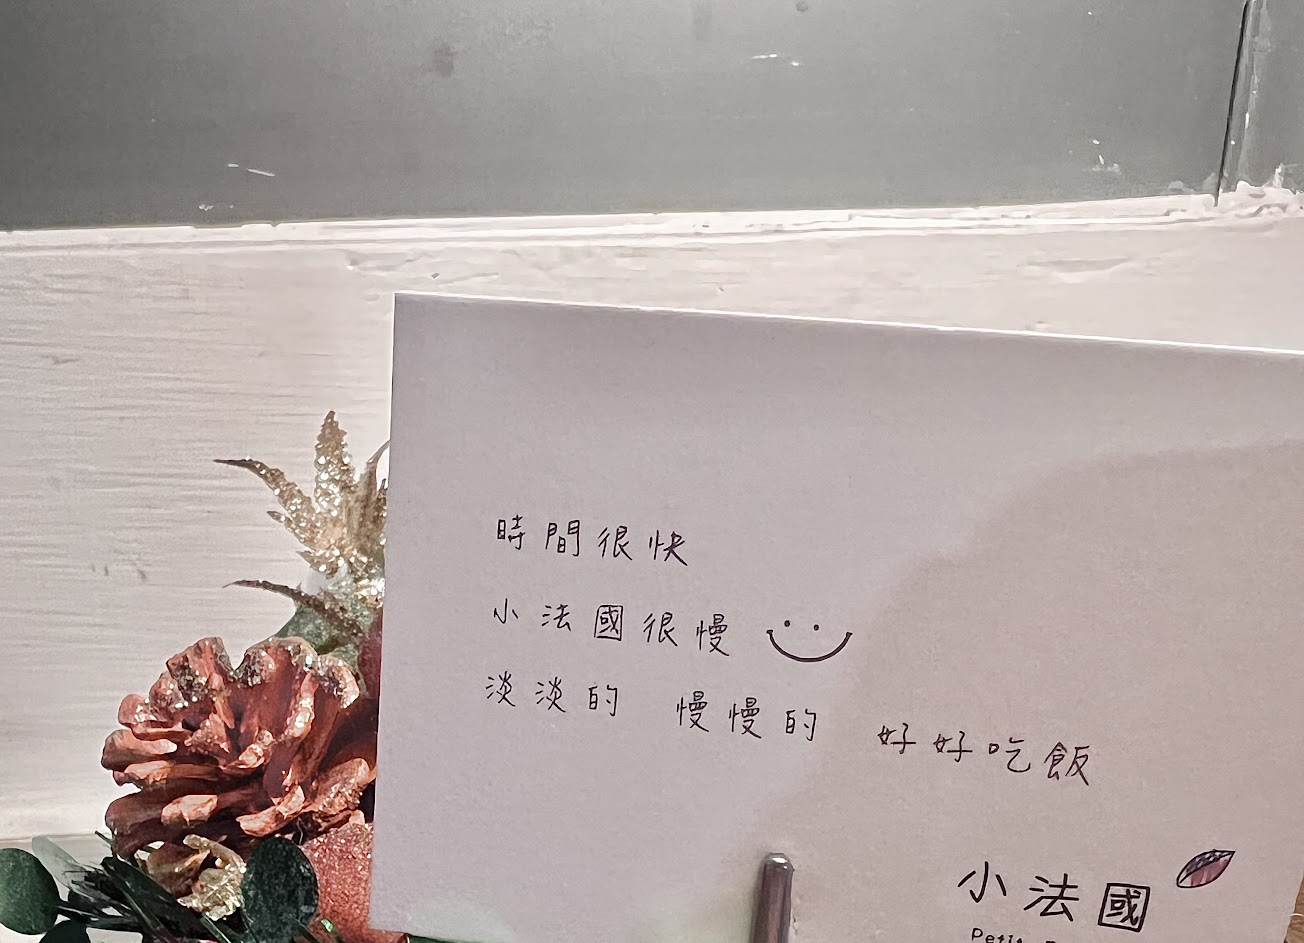 時間很快
小法國很慢
淡淡的 慢慢的 好好吃飯
小法國